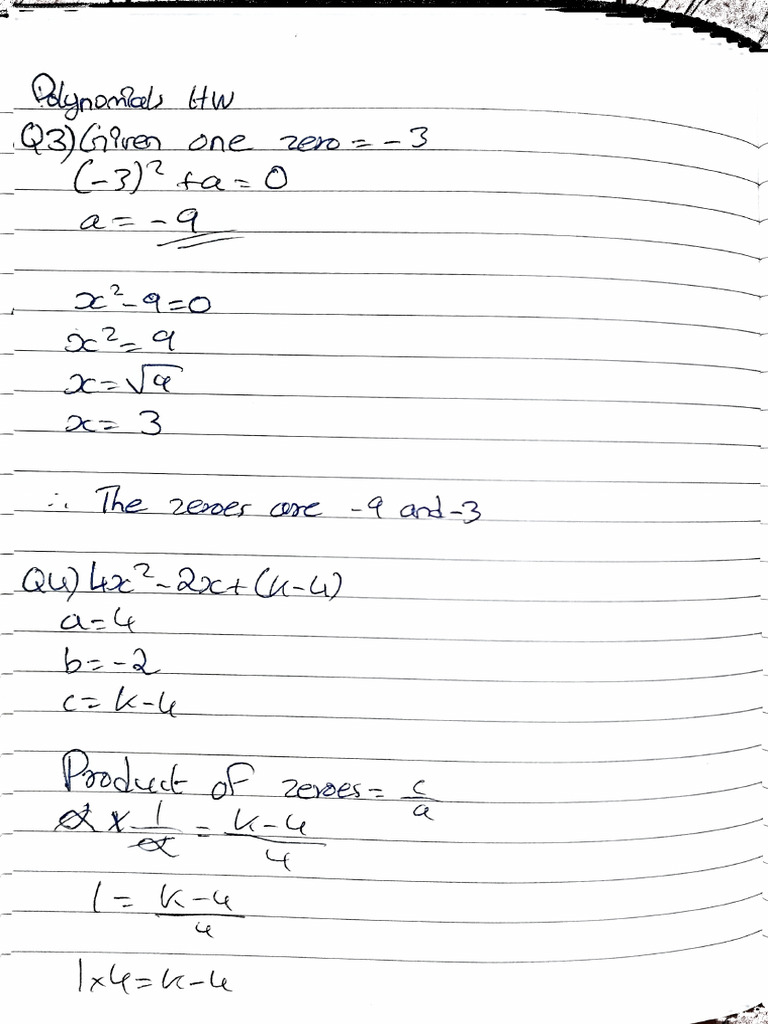 Polynomials HW
Q3) Given one zero = -3
(-3)² + a = 0
a = -9
x² - 9 = 0
x² = 9
x = √9
x = 3
∴ The zeroes are -9 and -3
Q4) 4x² - 2x + (k-4)
a = 4
b = -2
c = k-4
Product of zeroes = c/a
α × 1/α = k-4/4
1 = k-4/4
1×4 = k-4